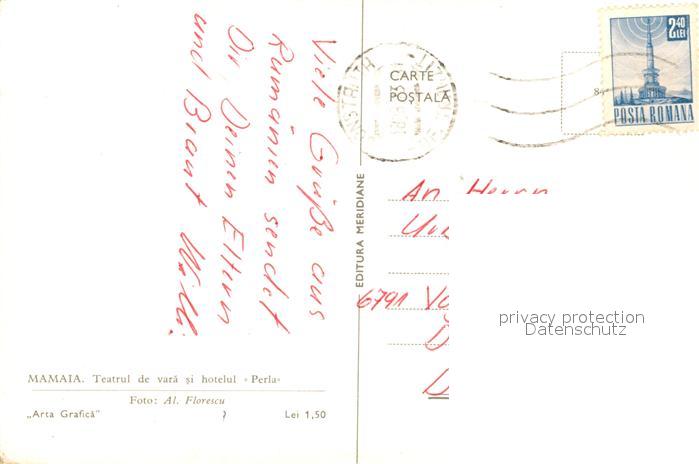 Viele Grüße aus
Rumänien sendet
Dir, Deinen Eltern
und Braut Willi.
CARTE
POȘTALĂ
2,40
LEI
POSTA ROMANA
EDITURA MERIDIANE
An Herrn
6791
privacy protection
Datenschutz
MAMAIA. Teatrul de vară și hotelul «Perla»
Foto: Al. Florescu
„Arta Grafică" Lei 1,50